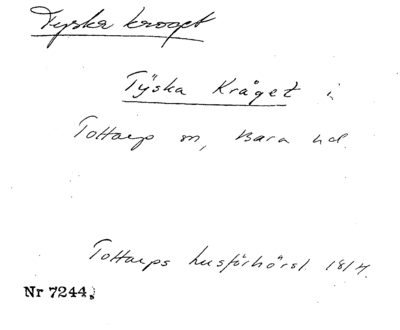 Tyska kroget
Tÿska Kråget i
Tottarp sn, Bara hd.
Tottarps husförhörsl. 1814.
Nr 7244.